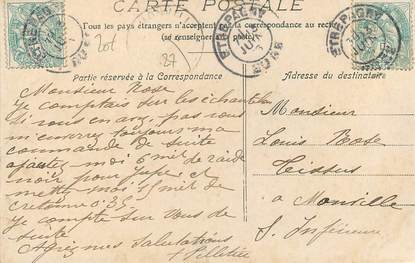 CARTE POSTALE
Tous les pays étrangers n'acceptent
(se renseigner
201
27
ETREPAGNY
EURE
Partie réservée à la Correspondance
Adresse du destinataire
Monsieur Rose
Je comptais sur les échantillons
Si vous en avez pas vous
m'enverez toujours ma
commande de suite
ajoutez moi 6 met de raide
noir pour jupe et
mettez moi 15 met de
cretonne 0.35
Je compte sur vous de
suite
Agréez mes salutations
Pelletier
Monsieur
Louis Rose
Tissus
a Monville
S. Inférieure